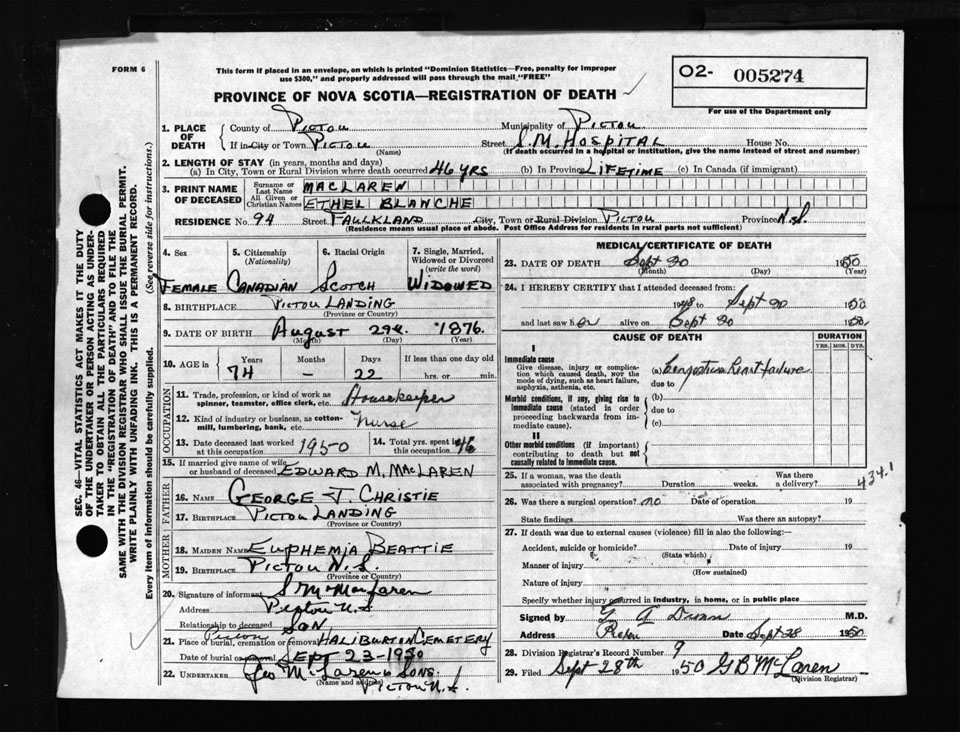 FORM 6
This form if placed in an envelope, on which is printed "Dominion Statistics—Free, penalty for improper
use $300," and properly addressed will pass through the mail "FREE"
O2- 005274
For use of the Department only
PROVINCE OF NOVA SCOTIA—REGISTRATION OF DEATH
1. PLACE OF DEATH { County of Pictou Municipality of Pictou
If in City or Town Pictou Street S.M. HOSPITAL House No.
(Name) (If death occurred in a hospital or institution, give the name instead of street and number)
2. LENGTH OF STAY (in years, months and days)
(a) In City, Town or Rural Division where death occurred 46 YRS (b) In Province LIFETIME (c) In Canada (if immigrant)
3. PRINT NAME OF DECEASED { Surname or Last Name MACLAREN
All Given or Christian Names ETHEL BLANCHE
RESIDENCE No. 94 Street FAULKLAND City, Town or Rural Division PICTOU Province N.S.
(Residence means usual place of abode. Post Office Address for residents in rural parts not sufficient)
4. Sex 5. Citizenship (Nationality) 6. Racial Origin 7. Single, Married, Widowed or Divorced (write the word)
FEMALE CANADIAN SCOTCH WIDOWED
8. BIRTHPLACE PICTOU LANDING
(Province or Country)
9. DATE OF BIRTH August 29th 1876
(Month) (Day) (Year)
10. AGE in { Years Months Days If less than one day old
74 — 22 hrs. or min.
OCCUPATION
11. Trade, profession, or kind of work as spinner, teamster, office clerk, etc. Housekeeper
12. Kind of industry or business, as cotton-mill, lumbering, bank, etc. Nurse
13. Date deceased last worked at this occupation 1950 14. Total yrs. spent in this occupation 46
15. If married give name of wife or husband of deceased EDWARD M. MACLAREN
FATHER
16. NAME GEORGE J. CHRISTIE
17. BIRTHPLACE PICTOU LANDING
(Province or Country)
MOTHER
18. MAIDEN NAME EUPHEMIA BEATTIE
19. BIRTHPLACE PICTOU N.S.
(Province or Country)
20. Signature of informant
Address Pictou N.S
Relationship to deceased SON
21. Place of burial, cremation or removal Pictou HALIBURTON CEMETERY
Date of burial or removal SEPT 23-1950
22. UNDERTAKER Geo McLaren & Sons.
(Name and address) PICTOU N.S.
MEDICAL CERTIFICATE OF DEATH
23. DATE OF DEATH Sept 20 1950
(Month) (Day) (Year)
24. I HEREBY CERTIFY that I attended deceased from:
1948 to Sept 20 1950
and last saw her alive on Sept 20 1950.
CAUSE OF DEATH DURATION
YRS. MOS. DYS.
I
Immediate cause
Give disease, injury or complication which caused death, NOT the mode of dying, such as heart failure, asphyxia, asthenia, etc.
(a) Congestive heart failure
due to
Morbid conditions, if any, giving rise to immediate cause (stated in order proceeding backwards from immediate cause).
(b)
due to
(c)
II
Other morbid conditions (if important) contributing to death but not causally related to immediate cause.
434.1
25. If a woman, was the death associated with pregnancy? Duration weeks. Was there a delivery?
26. Was there a surgical operation? no Date of operation 19
State findings Was there an autopsy?
27. If death was due to external causes (violence) fill in also the following:—
Accident, suicide or homicide? Date of injury 19
(State which)
Manner of injury
(How sustained)
Nature of injury
Specify whether injury occurred in industry, in home, or in public place
Signed by G A Dunn M.D.
Address Pictou Date Sept 28 1950
28. Division Registrar's Record Number 9
29. Filed Sept 28th 1950 G B McLaren
(Division Registrar)
SEC. 46—VITAL STATISTICS ACT MAKES IT THE DUTY
OF THE UNDERTAKER OR PERSON ACTING AS UNDER-
TAKER TO OBTAIN ALL THE PARTICULARS REQUIRED
IN THE "REGISTRATION OF DEATH" AND TO FILE THE
SAME WITH THE DIVISION REGISTRAR WHO SHALL ISSUE THE BURIAL PERMIT.
WRITE PLAINLY WITH UNFADING INK. THIS IS A PERMANENT RECORD.
Every item of information should be carefully supplied. (See reverse side for instructions.)